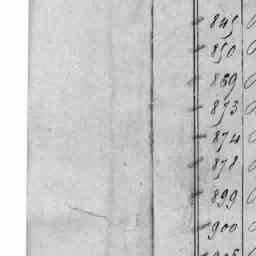 845
850
869
873
874
878
899
900